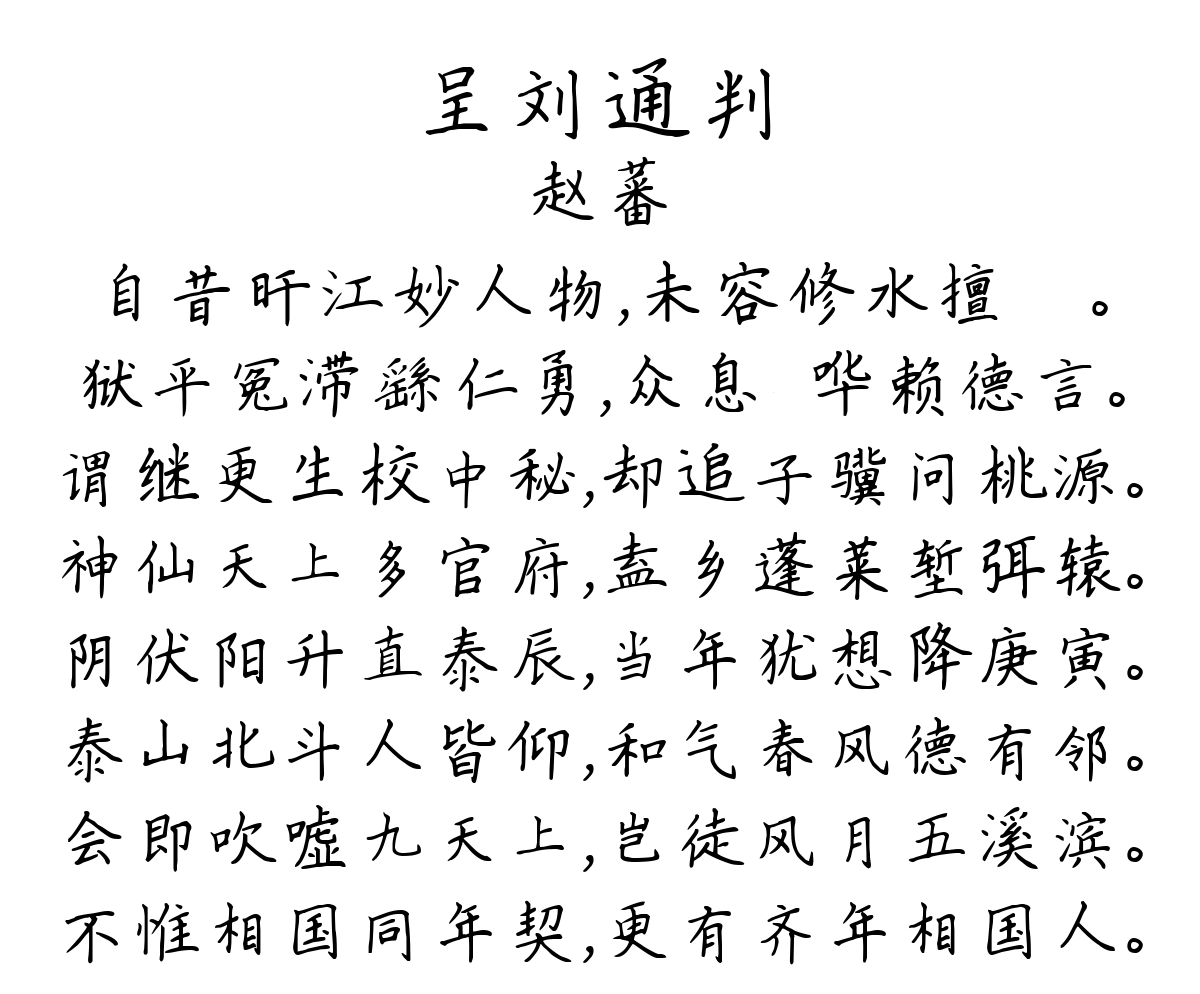 呈刘通判
赵蕃
自昔旴江妙人物,未容修水擅 。
狱平冤滞繇仁勇,众息 哗赖德言。
谓继更生校中秘,却追子骥问桃源。
神仙天上多官府,盍乡蓬莱堑弭辕。
阴伏阳升直泰辰,当年犹想降庚寅。
泰山北斗人皆仰,和气春风德有邻。
会即吹嘘九天上,岂徒风月五溪滨。
不惟相国同年契,更有齐年相国人。